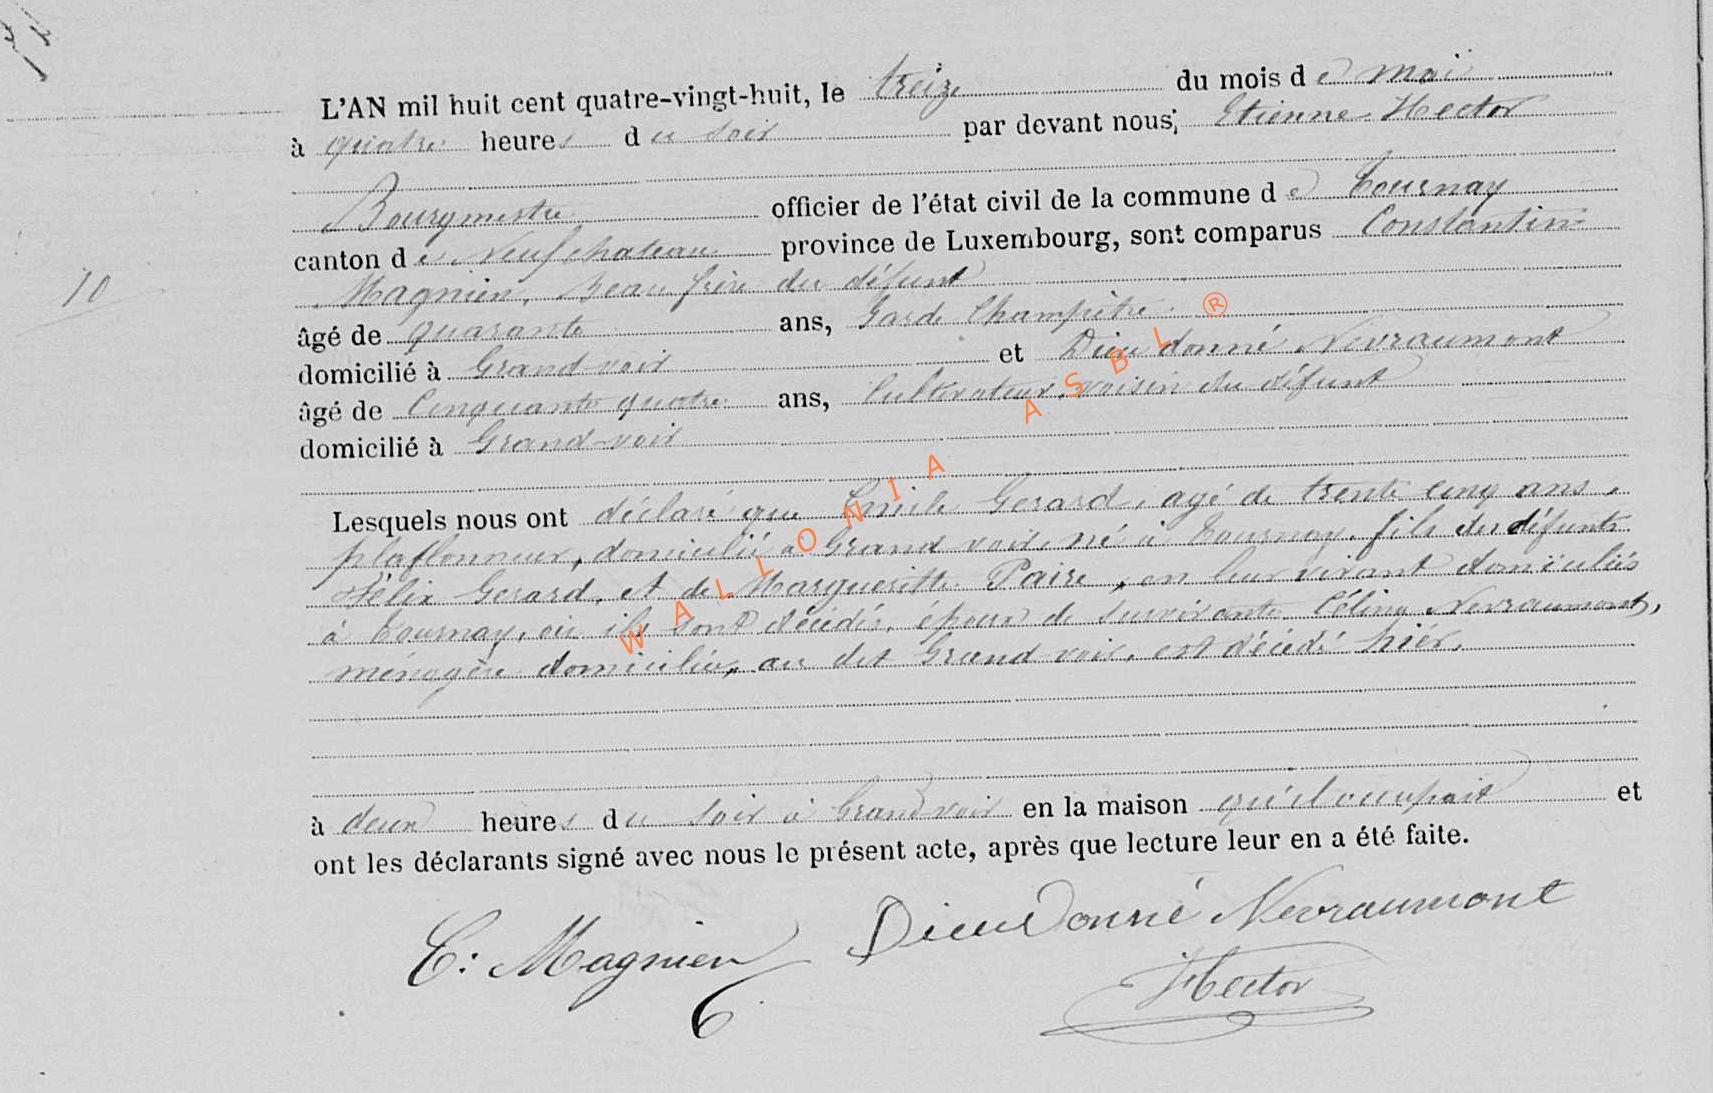 L'AN mil huit cent quatre-vingt-huit, le treize du mois de mai
à quatre heures du soir par devant nous; Etienne Hector
Bourgmestre officier de l'état civil de la commune de Tournay
canton de Neufchateau province de Luxembourg, sont comparus Constantin
Magnien, Beau frère du défunt
âgé de quarante ans, Garde Champêtre
domicilié à Grand-voir et Dieudonné Nevraumont
âgé de Cinquante quatre ans, Cultivateur, voisin du défunt
domicilié à Grand-voir
10
Lesquels nous ont déclaré que Emile Gerard, agé de trente cinq ans,
plaflonneur, domicilié à Grand voir, né à Tournay, fils des défunts
Félix Gerard, et de Margueritte Paire, en leur vivant domiciliés
à Tournay, où ils sont décédés, époux de survivante Céline Nevraumont,
ménagère domiciliée, au dit Grand-voir, est décédé hier,
à deux heures du soir à Grandvoir en la maison qu'il occupait et
ont les déclarants signé avec nous le présent acte, après que lecture leur en a été faite.
C: Magnien Dieudonné Nevraumont
Hector
WALLONIA ASBL ®